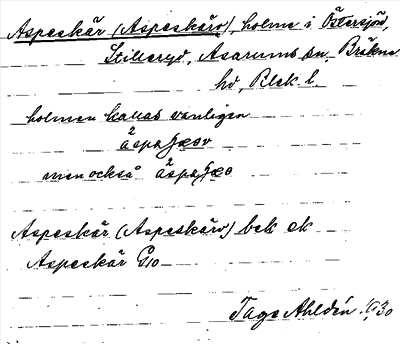 Aspeskär (Aspeskärv), holme i Östersjön,
Stilleryd, Asarums sn, Bräkne
hd, Blek l.
holmen kallas vanligen
men också
Aspeskär (Aspeskärv) bek ek
Aspeskär GK10
Tage Ahldén 1930